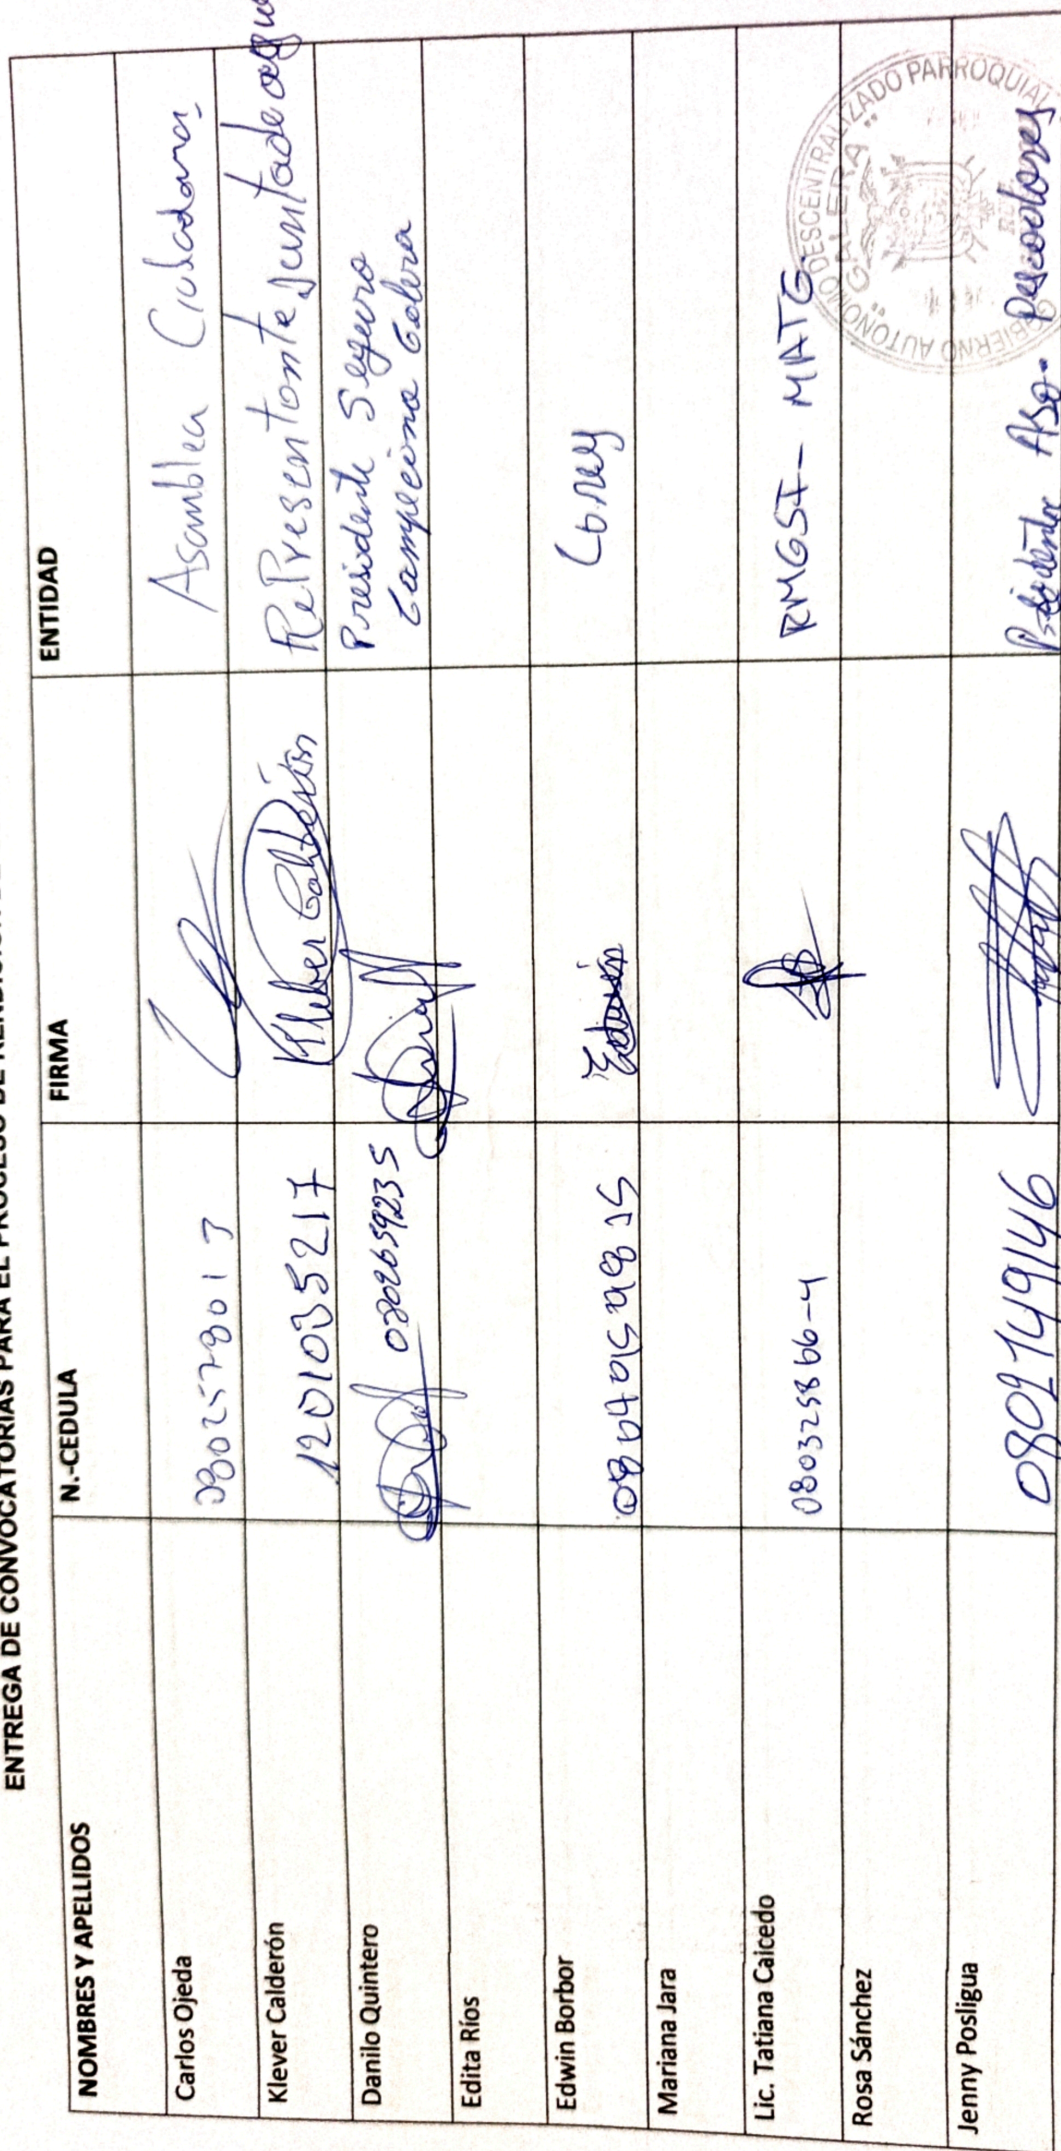 ENTREGA DE CONVOCATORIAS PARA EL PROCESO DE RENDICION DE
NOMBRES Y APELLIDOS N.-CEDULA FIRMA ENTIDAD
Carlos Ojeda Asamblea Ciudadana
Klever Calderón 1201035217 Kleber Calderón RePresentante Junta de agua
Danilo Quintero 0802659235 Presidente Seguro
Campecino Galera
Edita Ríos
Edwin Borbor Edwin
Mariana Jara
Lic. Tatiana Caicedo 080325866-4 RMGSF- MATG.
Rosa Sánchez
Jenny Posligua 0801749146 Presidenta Aso. Pescadores
GOBIERNO AUTONOMO DESCENTRALIZADO PARROQUIAL
"GALERA"